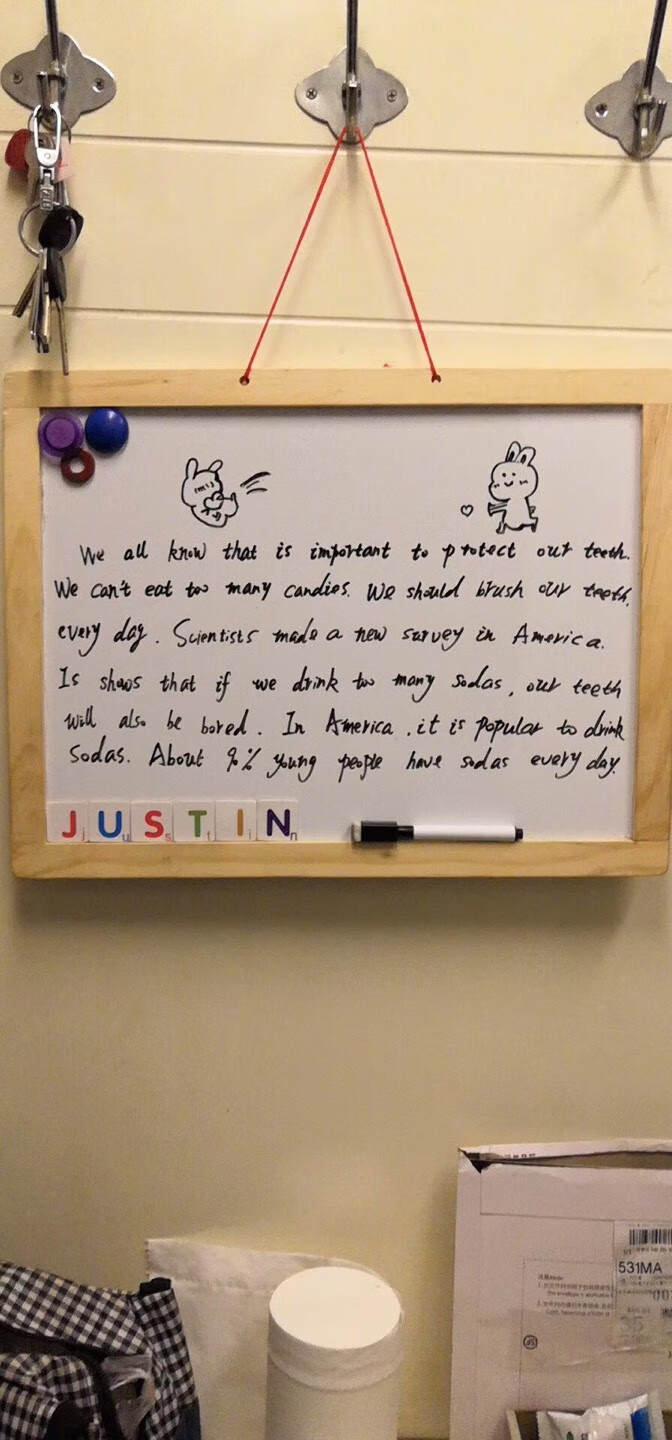 We all know that is important to protect our teeth.
We can't eat too many candies. We should brush our teeth.
every day. Scientists made a new survey in America.
Is shows that if we drink too many sodas, our teeth
will also be bored. In America, it is popular to drink
sodas. About 90% young people have sodas every day.
J j U u S s T t I i N n
531MA